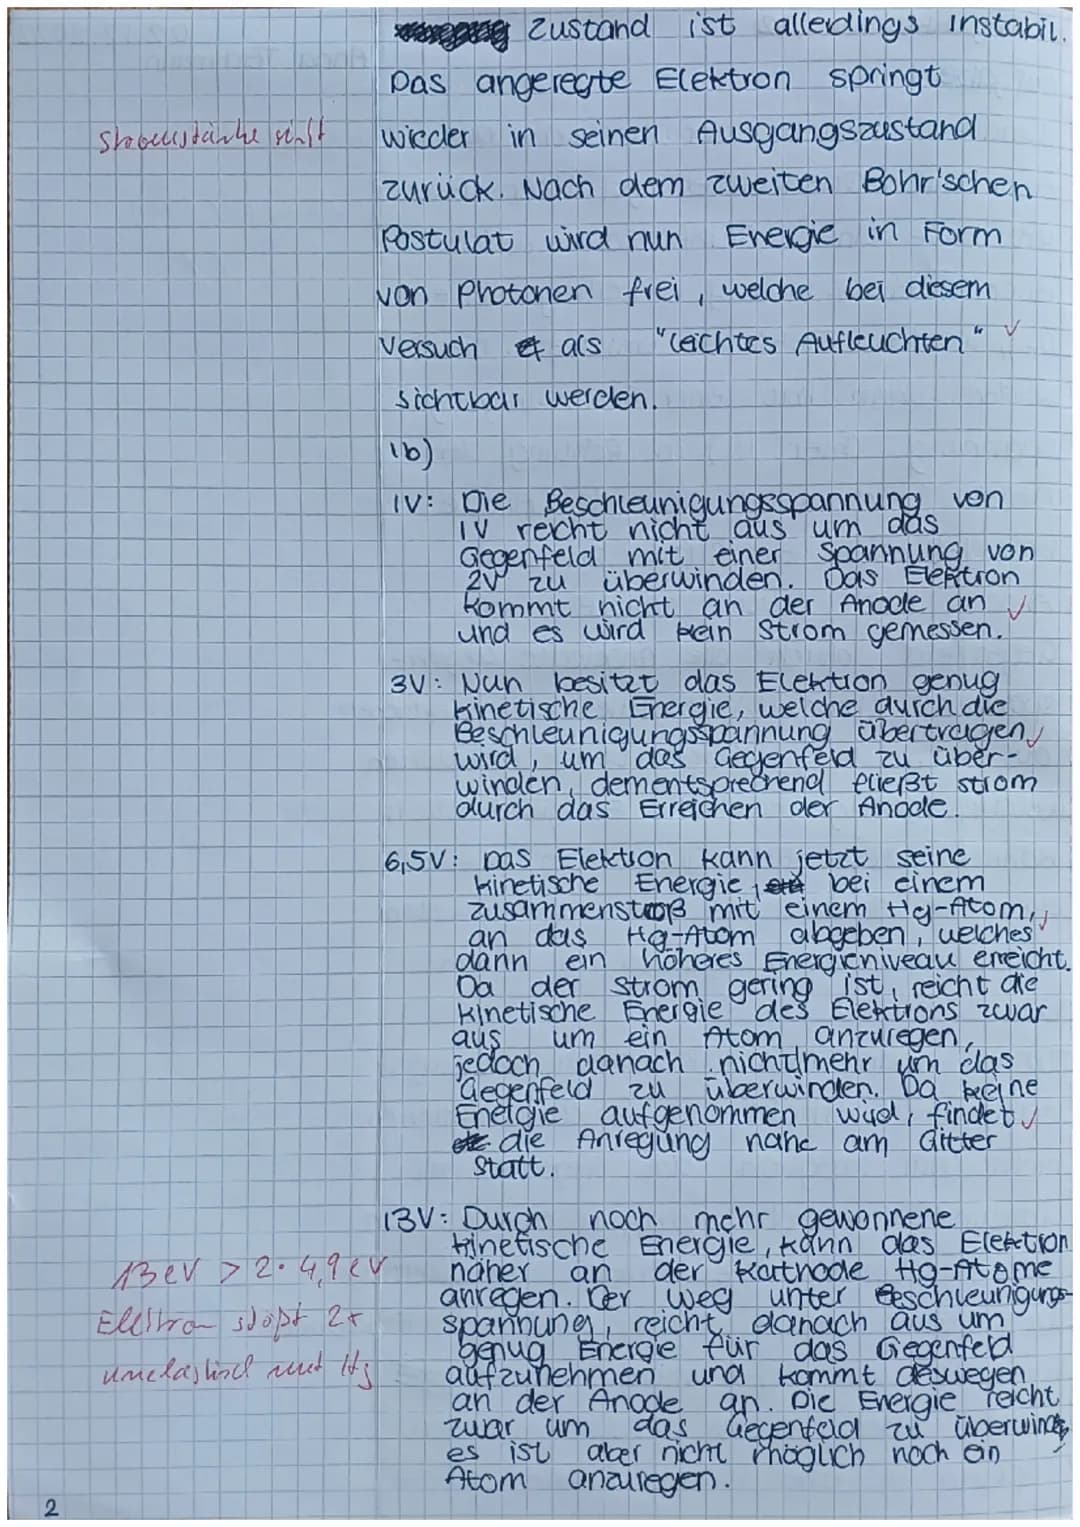 Zustand ist allerdings instabil.
Das angeregte Elektron springt
Stromstärke sinkt
wieder in seinen Ausgangszustand
zurück. Nach dem zweiten Bohr'schen
Postulat wird nun Energie in Form
von Photonen frei, welche bei diesem
Versuch als "leichtes Aufleuchten" ✓
sichtbar werden.
1b)
1V: Die Beschleunigungsspannung von
1V reicht nicht aus um das
Gegenfeld mit einer Spannung von
2V zu überwinden. Das Elektron
kommt nicht an der Anode an ✓
und es wird kein Strom gemessen.
3V: Nun besitzt das Elektron genug
kinetische Energie, welche durch die
Beschleunigungsspannung übertragen ✓
wird, um das Gegenfeld zu über-
winden, dementsprechend fließt strom
durch das Erreichen der Anode.
6,5V: Das Elektron kann jetzt seine
kinetische Energie, bei einem
zusammenstoß mit einem Hg-Atom, ✓
an das Hg-Atom abgeben, welches
dann ein höheres Energieniveau erreicht.
Da der Strom gering ist, reicht die
kinetische Energie des Elektrons zwar
aus um ein Atom anzuregen,
jedoch danach nicht mehr um das
Gegenfeld zu überwinden. Da keine
Energie aufgenommen wird, findet ✓
die Anregung nahe am Gitter
statt.
13V: Durch noch mehr gewonnene
kinetische Energie, kann das Elektron
näher an der Kathode Hg-Atome
anregen. Der Weg unter Beschleunigungs-
spannung, reicht danach aus um
genug Energie für das Gegenfeld
aufzunehmen und kommt deswegen
an der Anode an. Die Energie reicht
zwar um das Gegenfeld zu überwinden,
es ist aber nicht möglich noch ein
Atom anzuregen.
13eV > 2·4,9eV
Elektron stößt 2x
unelastisch mit Hg
2